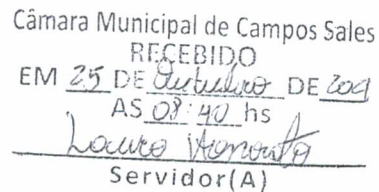 Câmara Municipal de Campos Sales
RECEBIDO
EM 25 DE Outubro DE
AS 08:40 hs
Servidor(A)